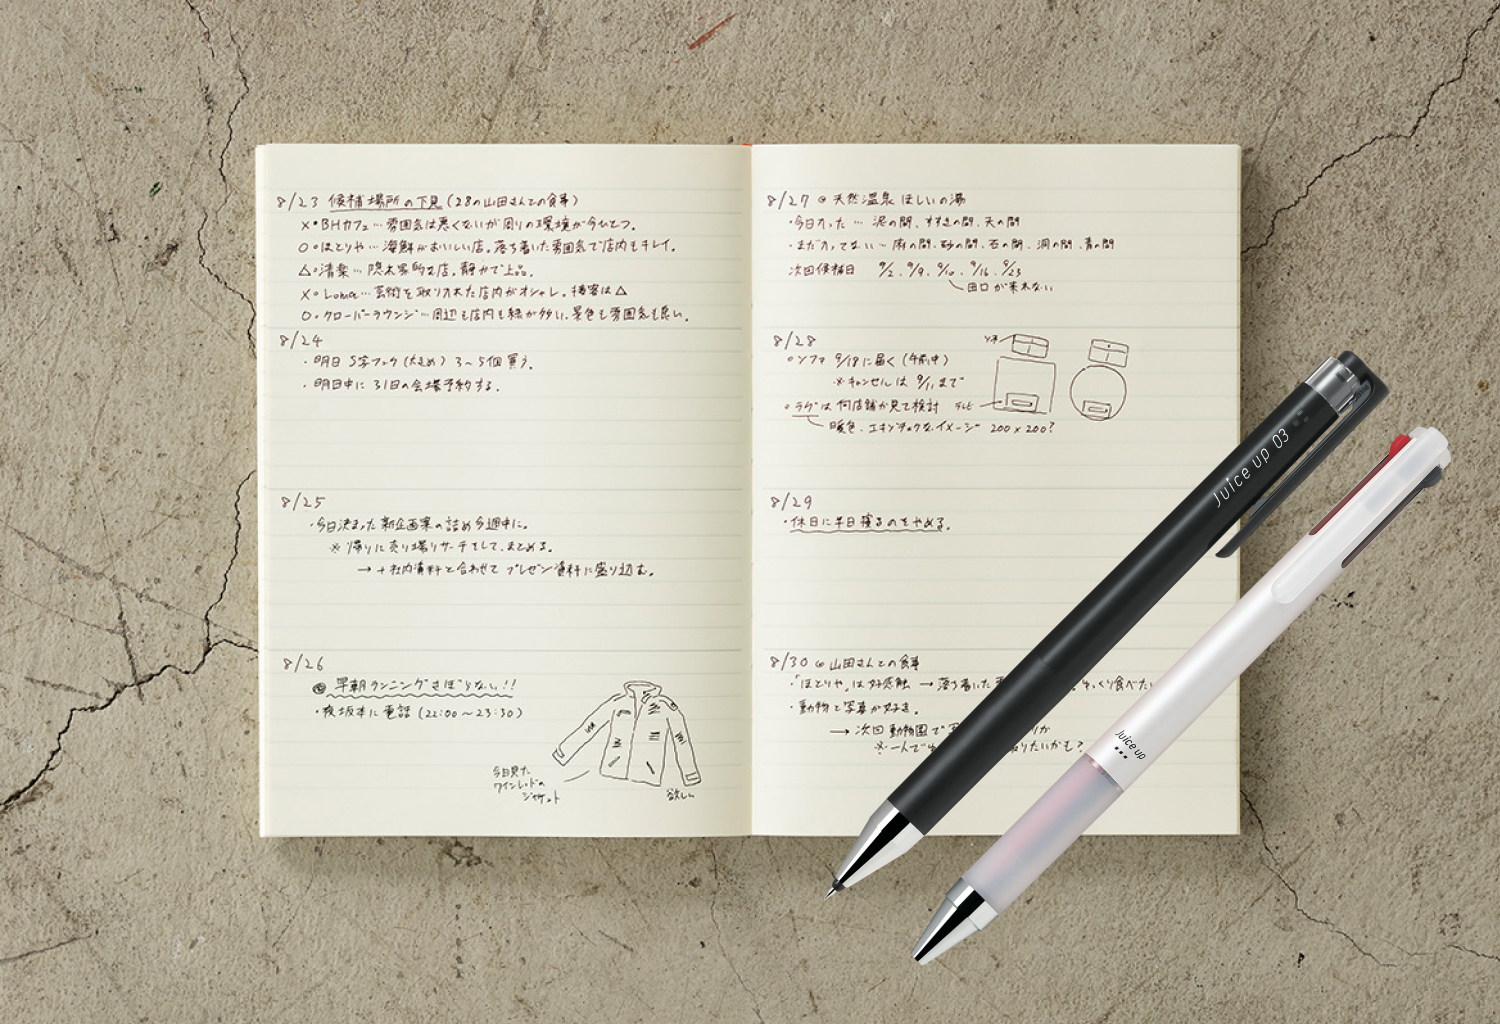 8/23 候補場所の下見(28の山田さんとの食事)
×・BHカフェ…雰囲気は悪くないが周りの環境が今ひとつ。
○・ほとりや…海鮮がおいしい店。落ち着いた雰囲気で店内もキレイ。
△・清楽…隠れ家的な店。静かで上品。
×・Lomoe…芸術を取り入れた店内がオシャレ。接客は△
○・クローバーラウンジ…周辺も店内も緑が多い、景色も雰囲気も良い。
8/24
・明日S字フック(大きめ)3〜5個買う。
・明日中に31日の会場予約する。
8/25
・今日決まった新企画案の詰め今週中に。
※帰りに売り場リサーチをして、まとめる。
→+社内資料と合わせてプレゼン資料に盛り込む。
8/26
早朝ランニングさぼらない!!
・夜坂本に電話(22:00〜23:30)
今日見た
ワインレッドの
ジャケット
欲しい
8/27 @天然温泉ほしいの湯
・今日入った…泥の間、すすきの間、天の間
・まだ入ってない…麻の間、砂の間、石の間、洞の間、青の間
次回候補日 9/2、9/9、9/10、9/16、9/23
田口が来れない
8/28
○ソファ 9/18に届く(午前中)
※キャンセルは9/11まで
○ラグは何店舗か見て検討
テレビ
暖色、エキゾチックなイメージ 200×200?
ソファ
8/29
・休日に半日寝るのをやめる。
8/30 @山田さんとの食事
・「ほとりや」は好感触→落ち着いた
ゆっくり食べたい
・動物と写真が好き。
→次回動物園で
※一人で
取りたいかも?
Juice up 03
Juice up